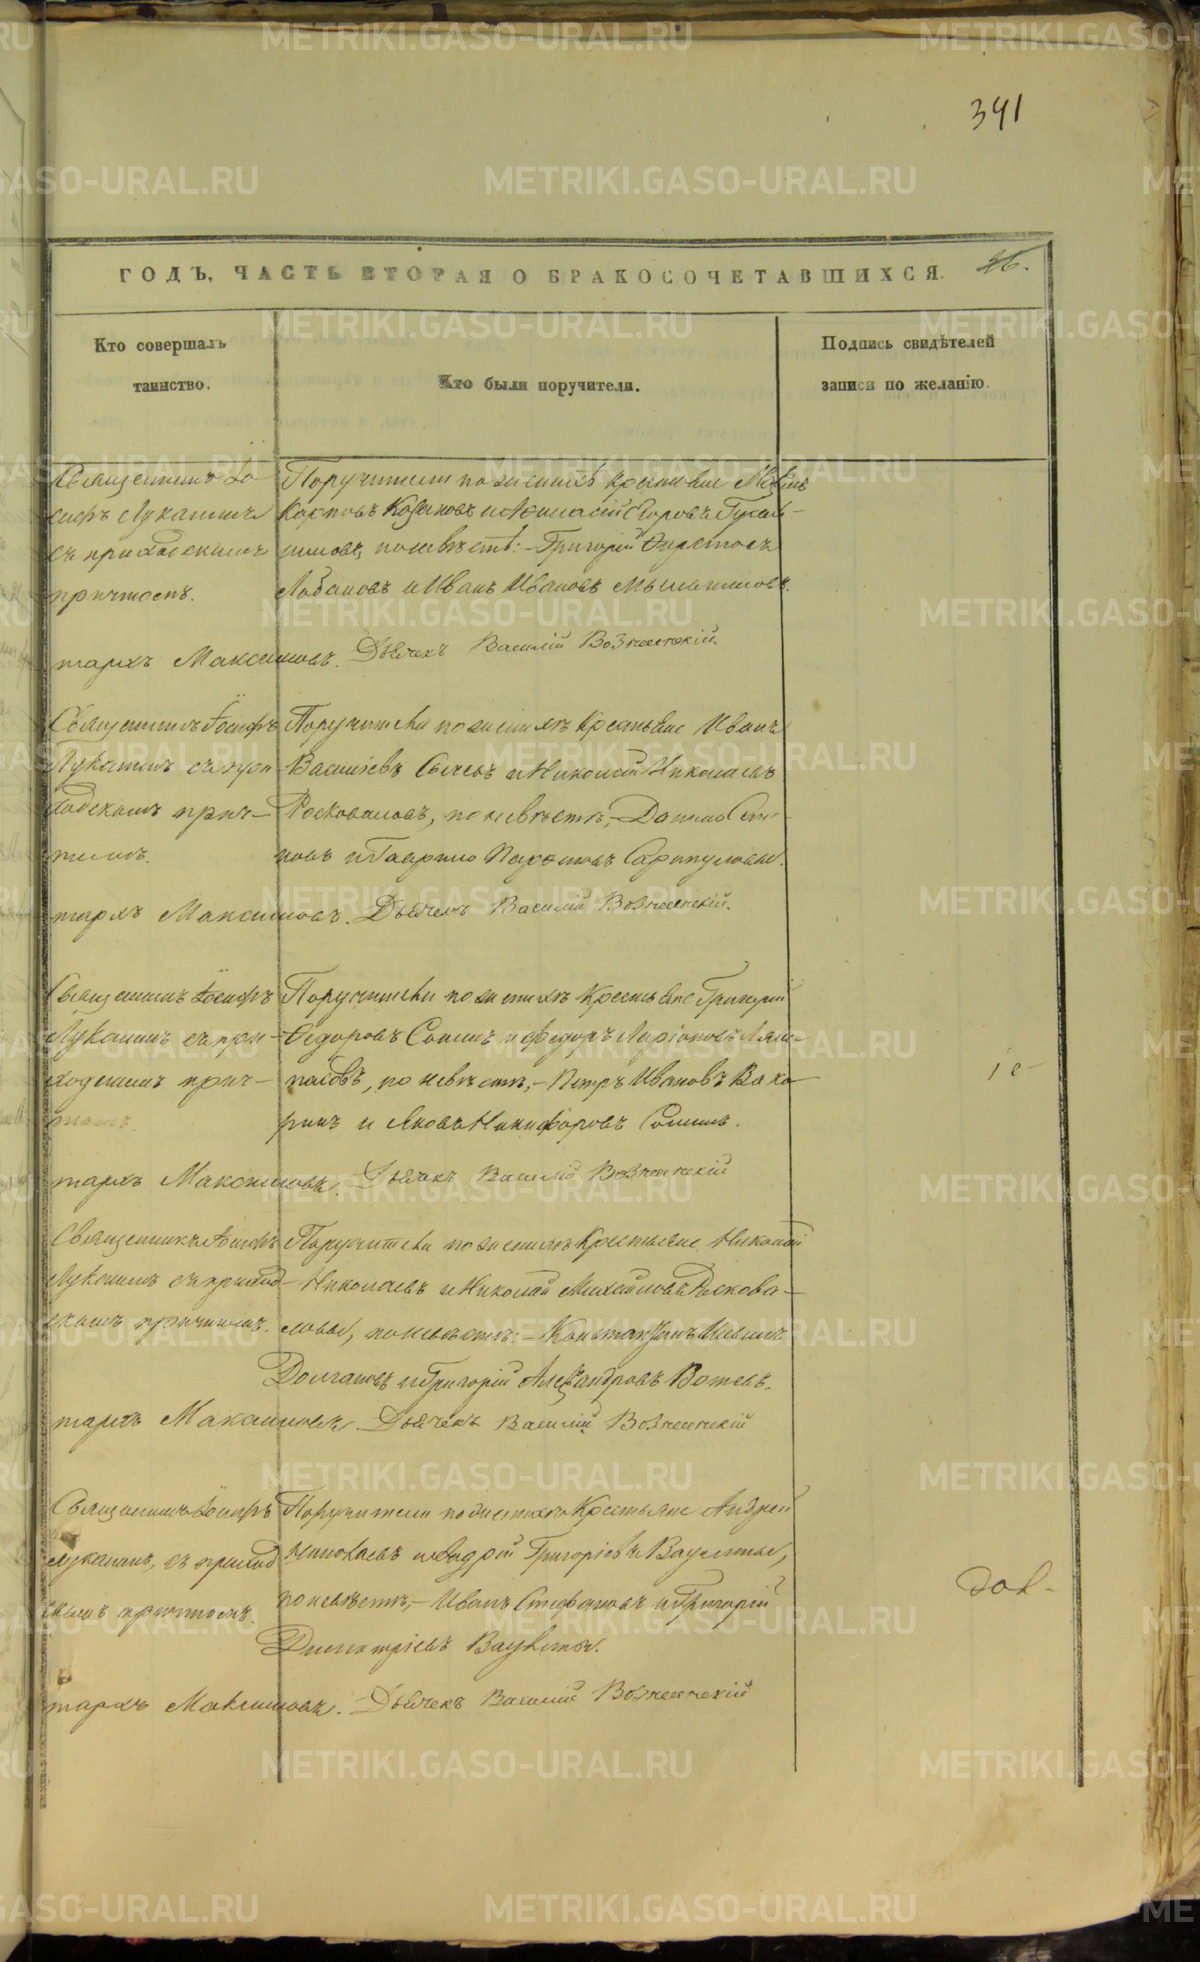 341
ГОДЪ, ЧАСТЬ ВТОРАЯ О БРАКОСОЧЕТАВШИХСЯ. 26.
Кто совершалъ таинство.
Кто были поручители.
Подпись свидѣтелей записи по желанію.
Священникъ Іо-
сифъ Лукашинъ
съ приходскимъ
причтомъ.
Поручители по женихѣ крестьяне
Карповъ Казаковъ и Егоровъ
по невѣстѣ: Григорій
Лобановъ и Иванъ Ивановъ Мыльниковъ.
тархъ Максимовъ. Дьячекъ Василій Вознесенскій.
Священникъ Іосифъ
Лукашинъ съ при-
ходскимъ прич-
томъ.
Поручители по женихѣ Крестьяне Иванъ
Васильевъ Сычевъ и Николай Николаевъ
Росковаловъ, по невѣстѣ, Данило
и Гаврило Сарапуловы.
тархъ Максимовъ. Дьячекъ Василій Вознесенскій.
Священникъ Іосифъ
Лукашинъ съ при-
ходскимъ прич-
томъ.
Поручители по женихѣ Крестьяне Григорій
Ѳедоровъ и Федоръ Ларіоновъ
по невѣстѣ, Петръ Ивановъ Вахо-
ринъ и Яковъ Никифоровъ
тархъ Максимовъ. Дьячекъ Василій Вознесенскій
Священникъ Іосифъ
Лукашинъ съ приход-
скимъ причтомъ.
Поручители по женихѣ Крестьяне Николай
Николаевъ и Николай Михайловъ Роскова-
ловы, по невѣстѣ: Константинъ
Долгановъ и Григорій Александровъ Вотевъ.
тархъ Максимовъ. Дьячекъ Василій Вознесенскій
Священникъ Іосифъ
Лукашинъ, съ приход
скимъ причтомъ.
Поручители по женихѣ Крестьяне Андрей
Николаевъ и Андрей Григорьевъ Ваулины,
по невѣстѣ, Иванъ Стефановъ и Григорій
Димитріевъ Ваулины.
тархъ Максимовъ. Дьячекъ Василій Вознесенскій
METRIKI.GASO-URAL.RU